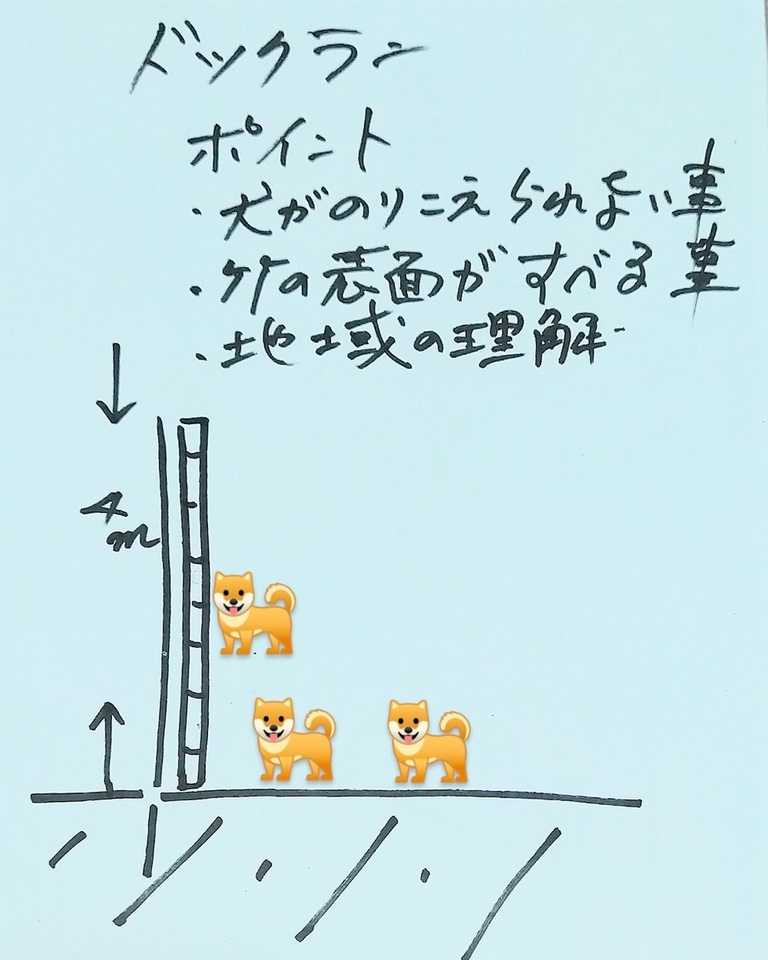 ドックラン
ポイント
・犬がのりこえられない事
・竹の表面がすべる事
・地域の理解
4m